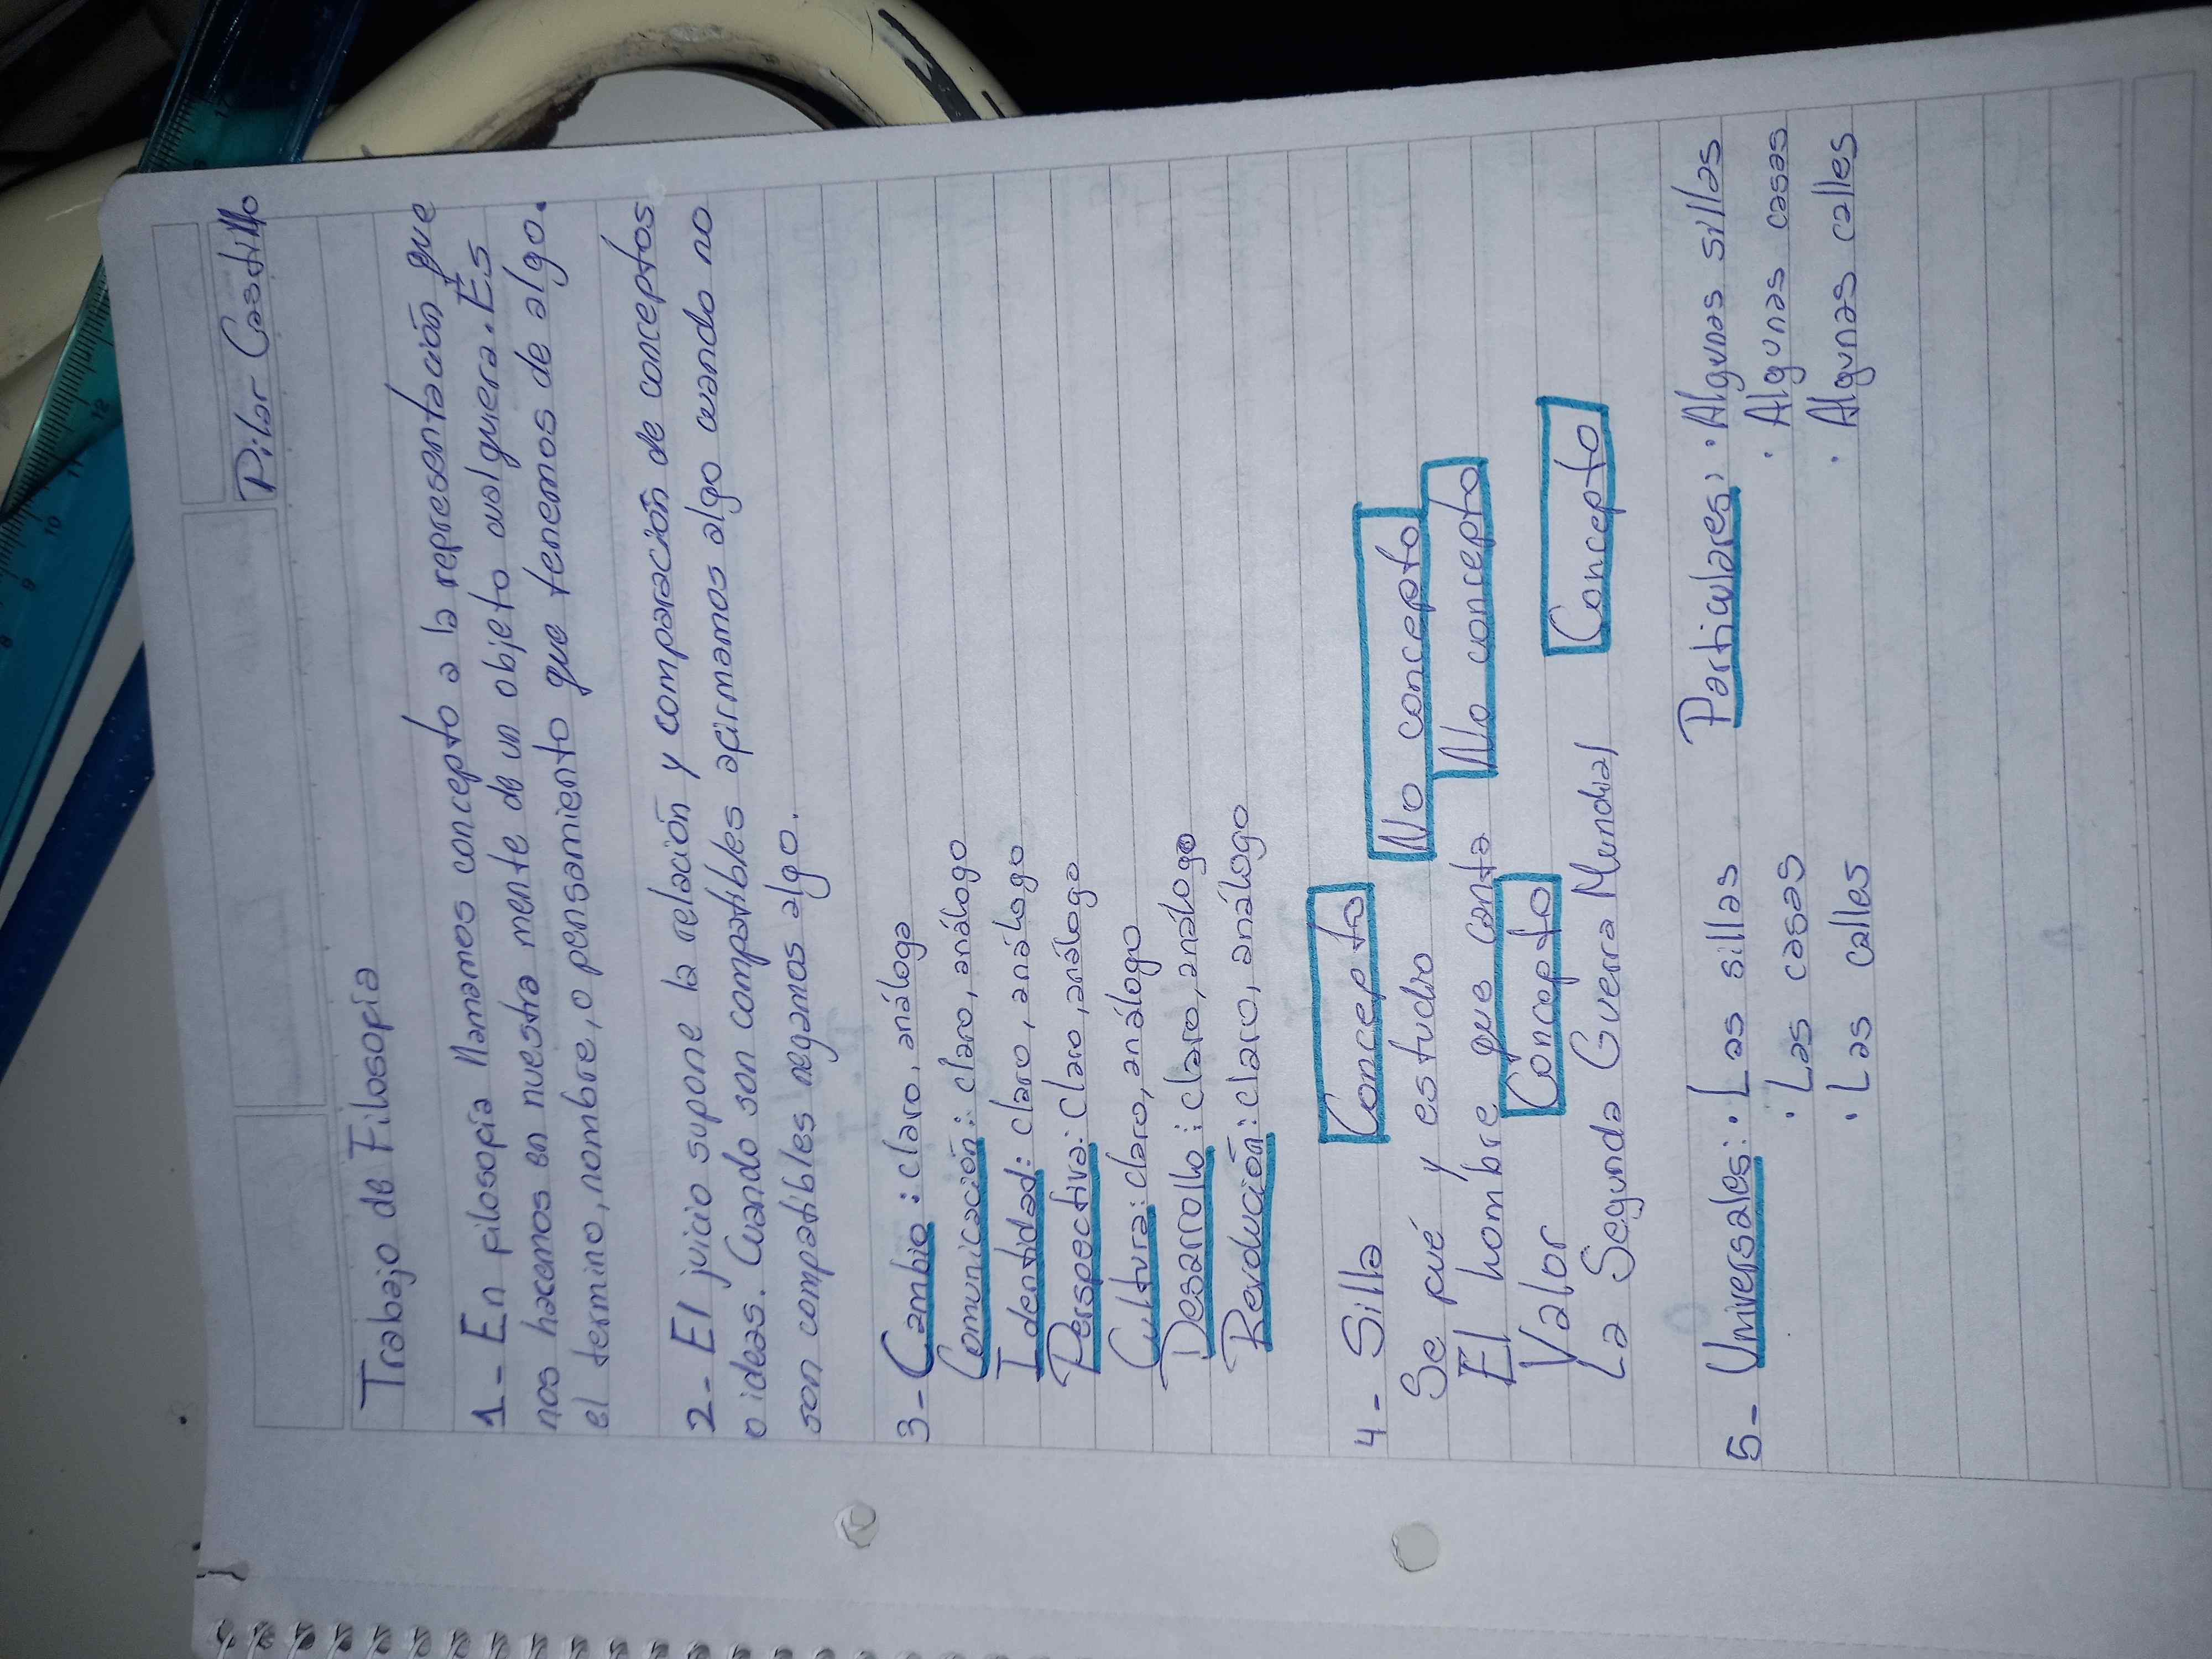 Pilar Castillo
Trabajo de Filosofía
1- En filosofía llamamos concepto a la representación que
nos hacemos en nuestra mente de un objeto cualquiera. Es
el termino, nombre, o pensamiento que tenemos de algo.
2- El juicio supone la relación y comparación de conceptos
o ideas. Cuando son compatibles afirmamos algo cuando no
son compatibles negamos algo.
3- Cambio: claro, análogo
Comunicación: claro, análogo
Identidad: claro, análogo
Perspectiva: claro, análogo
Cultura: claro, análogo
Desarrollo: claro, análogo
Reducción: claro, análogo
4- Silla Concepto
Se fué y estudio No concepto
El hombre que canta No concepto
Valor Concepto
La Segunda Guerra Mundial Concepto
5- Universales: · Las sillas Particulares: · Algunas sillas
· Las casas · Algunas casas
· Las calles · Algunas calles